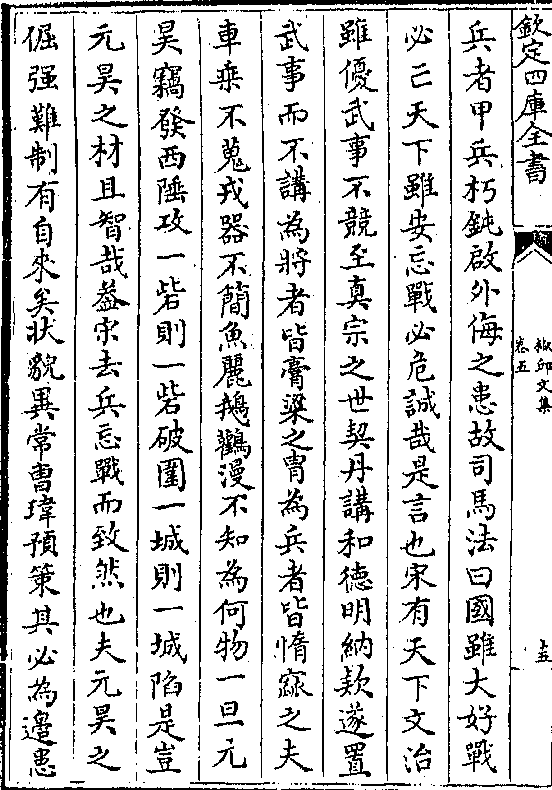 欽定四庫全書
椒邱文集
卷五
十五
兵者甲兵朽鈍啟外侮之患故司馬法曰國雖大好戰
必亡天下雖安忘戰必危誠哉是言也宋有天下文治
雖優武事不競至真宗之世契丹講和德明納欵遂置
武事而不講為將者皆膏粱之胄為兵者皆惰窳之夫
車乗不蒐戎器不簡魚麗鵝鸛漫不知為何物一旦元
昊竊發西陲攻一砦則一砦破圍一城則一城陷是豈
元昊之材且智哉葢宋去兵忘戰而致然也夫元昊之
倔强難制有自來矣狀貌異常曹瑋預策其必為邊患